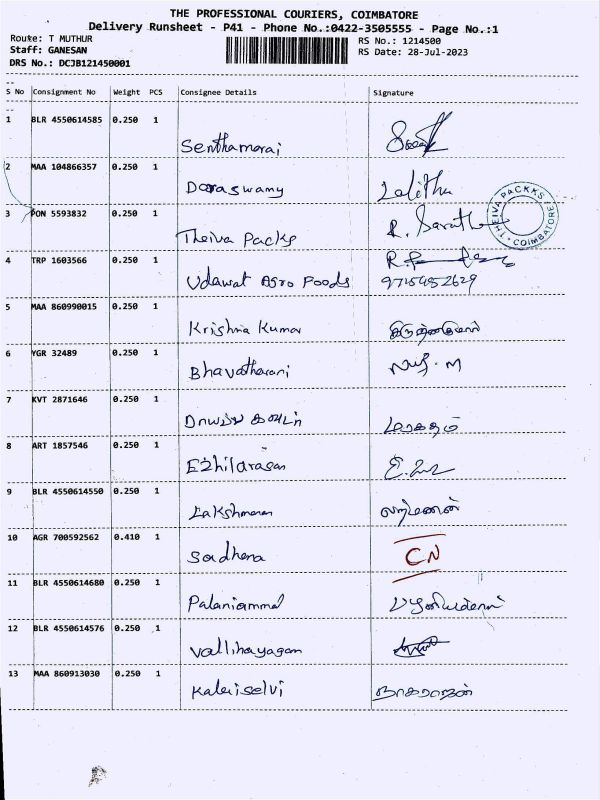 THE PROFESSIONAL COURIERS, COIMBATORE
Delivery Runsheet - P41 - Phone No.:0422-3505555 - Page No.:1
Route: T MUTHUR
RS No.: 1214500
Staff: GANESAN
RS Date: 28-Jul-2023
DRS No.: DCJB121450001
S No Consignment No Weight PCS Consignee Details Signature
1 BLR 4550614585 0.250 1 Senthamarai
2 MAA 104866357 0.250 1 Doraswamy Lalitha
3 PON 5593832 0.250 1 Theiva Packs R. Sarath
THEIVA PACKKS COIMBATORE
4 TRP 1603566 0.250 1 Udawat Agro Foods
5 MAA 860990015 0.250 1 Krishna Kumar
6 YGR 32489 0.250 1 Bhavatharani
7 KVT 2871646 0.250 1
8 ART 1857546 0.250 1 Ezhilarasan
9 BLR 4550614550 0.250 1 Lakshmanan
10 AGR 700592562 0.410 1 Sadhena CN
11 BLR 4550614680 0.250 1 Palaniammal
12 BLR 4550614576 0.250 1 Vallinayagam
13 MAA 860913030 0.250 1 Kalaiselvi நாகராஜன்